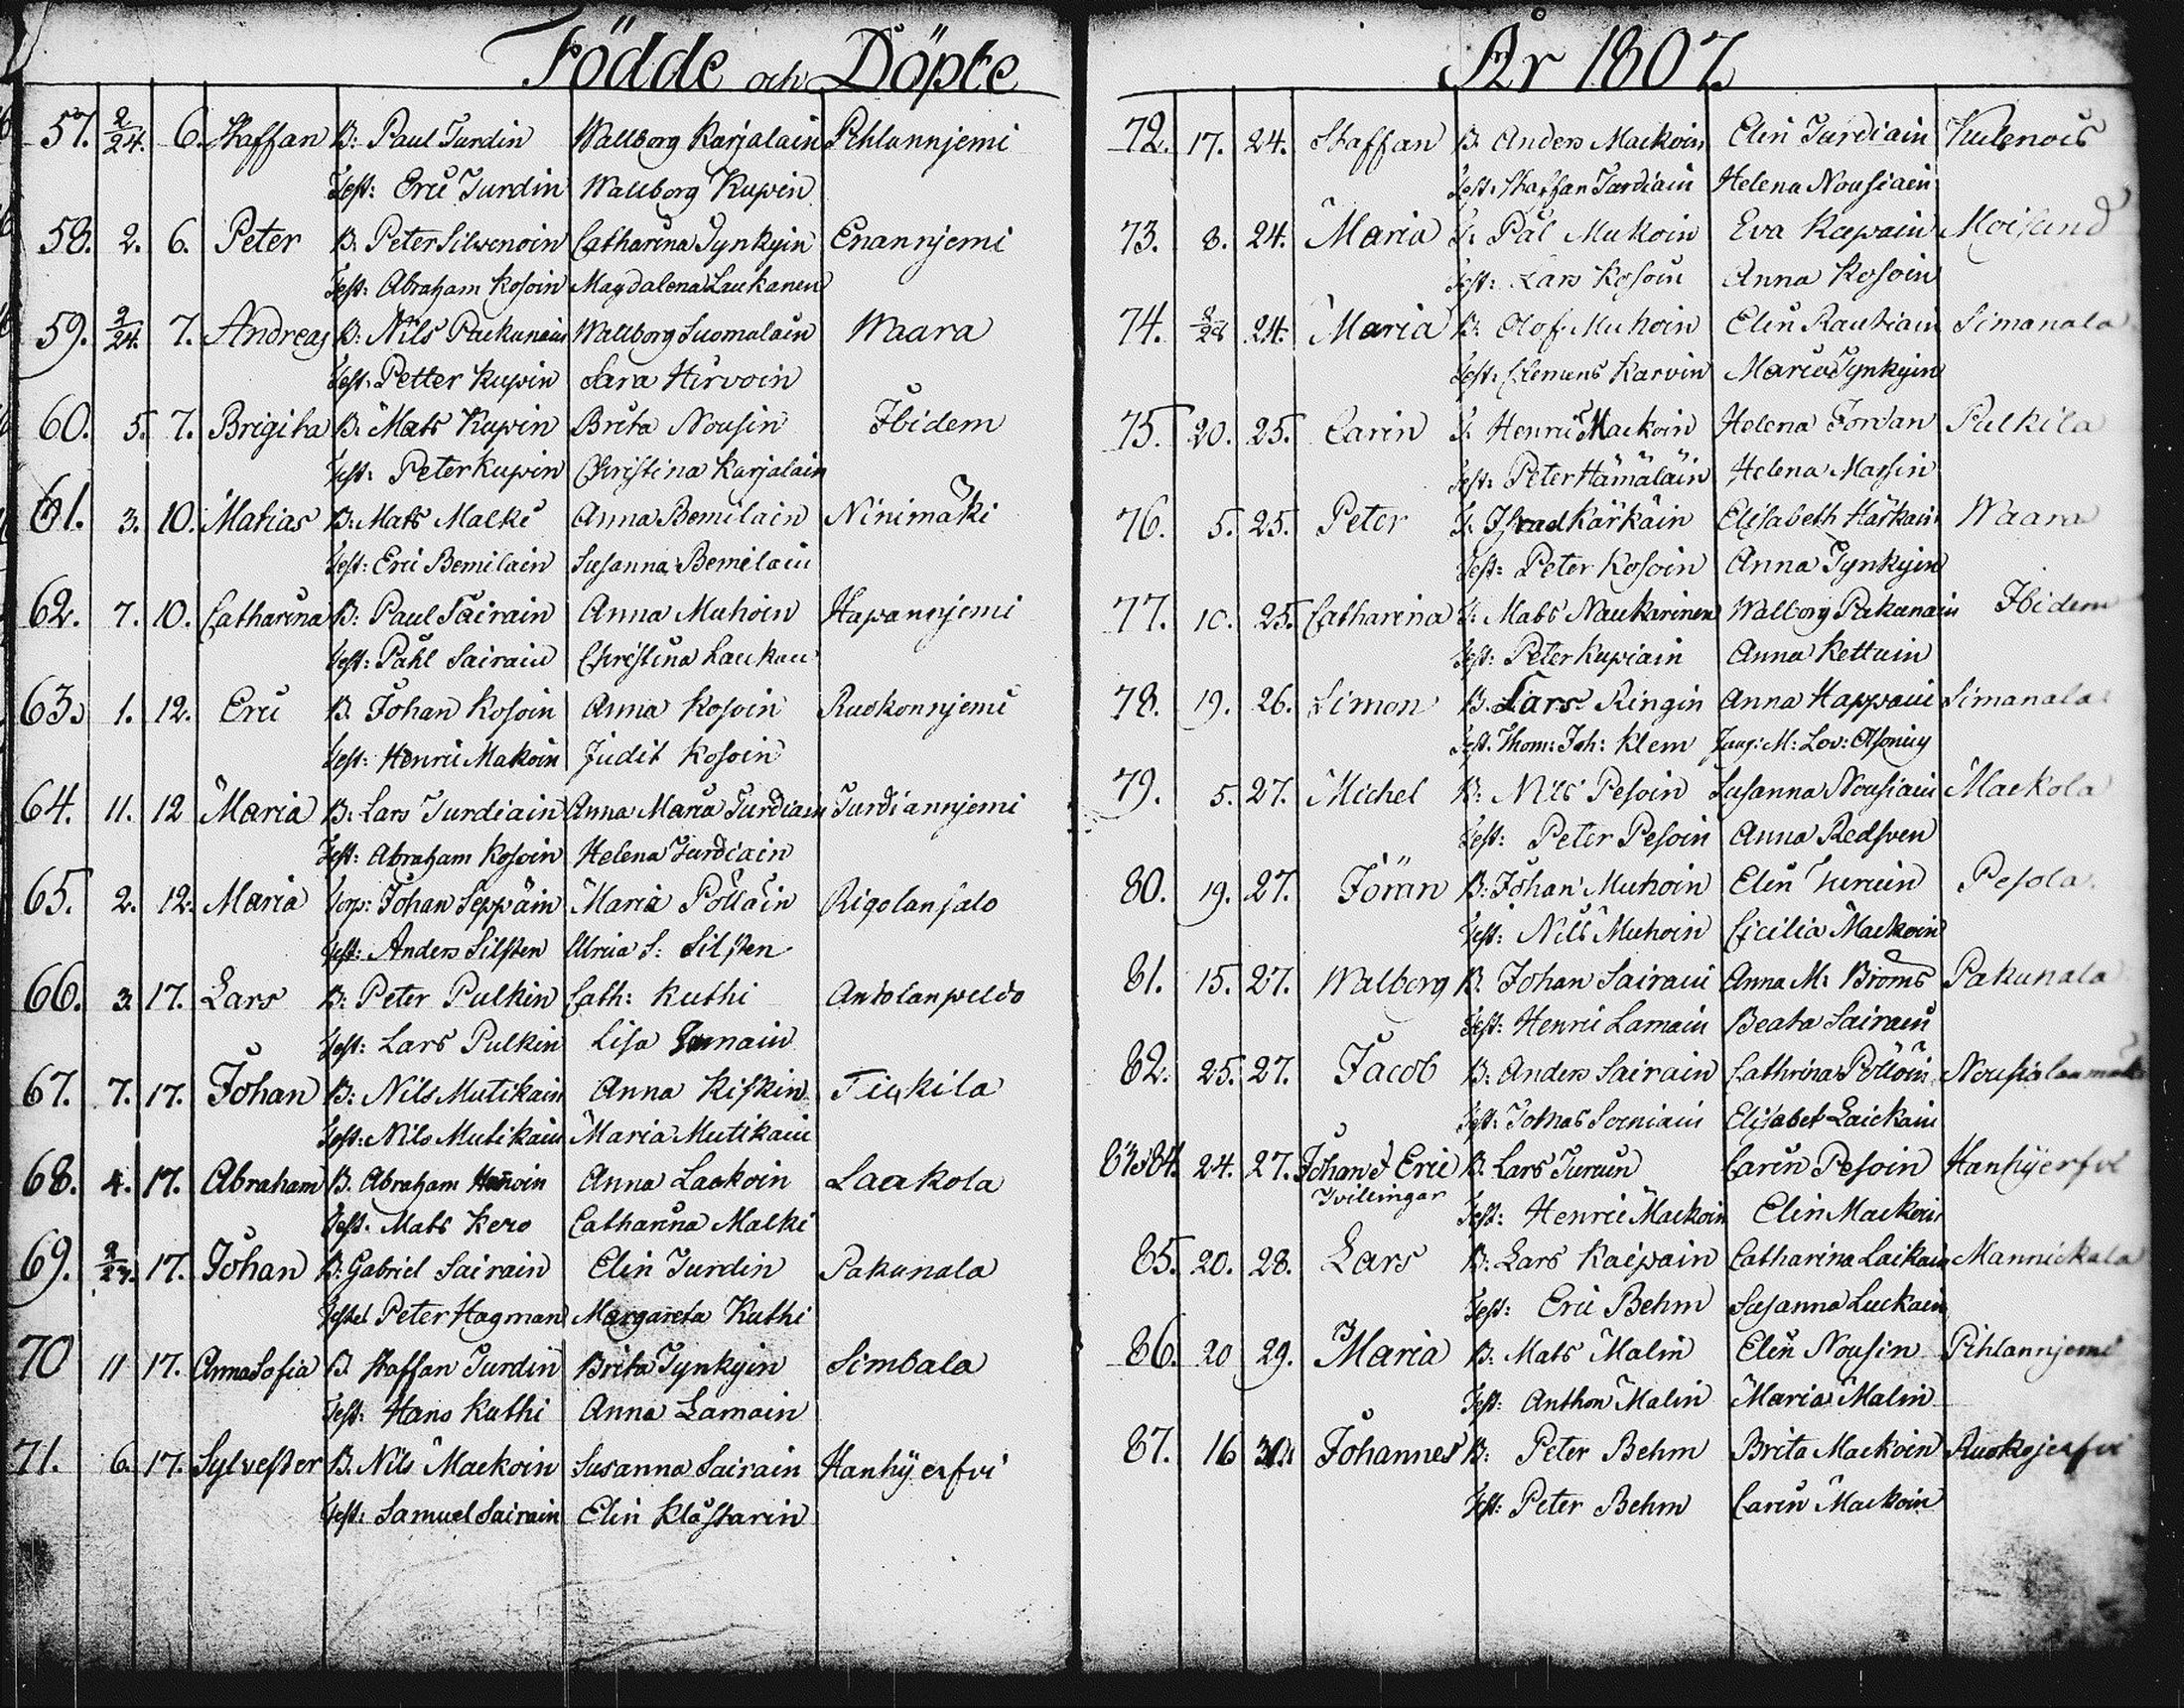 Födde och Döpte
57. 2/24. 6. Staffan B: Paul Turdin Wallborg Karjalain Pihlannjemi
Test: Eric Turdin Wallborg Kupin
58. 2. 6. Peter B. Peter Silvenoin Catharina Tynkyin Enannjemi
Test: Abraham Kosoin Magdalena Laukanen
59. 2/24. 7. Andreas B: Nils Packunain Wallborg Suomalain Waara
Test: Petter Kupin Sara Hirvoin
60. 5. 7. Brigita B: Mats Kupin Brita Nousin Ibidem
Test: Peter Kupin Christina Karjalain
61. 3. 10. Matias B: Mats Malki Anna Bemilain Ninimäki
Test: Eric Bemilain Susanna Bemilain
62. 7. 10. Catharina B: Paul Sairain Anna Muhoin Hapannjemi
Test: Pahl Sairain Christina Laukan
63. 1. 12. Eric B. Johan Kosoin Anna Kosoin Ruokonnjemi
Test: Henric Makoin Judit Kosoin
64. 11. 12 Maria B: Lars Turdiain Anna Maria Turdiain Turdiannjemi
Test: Abraham Kosoin Helena Turdiain
65. 2. 12. Maria Torp: Johan Seppäin Maria Pölläin Rigolansalo
Test: Anders Silsten Ulrica S: Silsten
66. 3. 17. Lars B: Peter Pulkin Cath: Kuthi Antolanpeldo
Test: Lars Pulkin Lisa
67. 7. 17. Johan B: Nils Mutikain Anna Kiskin Tiukila
Test: Nils Mutikain Maria Mutikain
68. 4. 17. Abraham B. Abraham Anna Laakoin Laakola
Test. Mats Kero Catharina Malki
69. 17. Johan B: Gabriel Sairain Elin Turdin Pakunala
Peter Hagman Margareta Kuthi
70 11 17. Anna Sofia B. Staffan Turdin Brita Tynkyin Simbala
Test: Hans Kuthi Anna Lamain
71. 6. 17. Sylvester B. Nils Mackoin Susanna Sairain Hanhijerfvi
Test: Samuel Sairain Elin Klåstarin
År 1807.
72. 17. 24. Staffan B. Anders Mackoin Elin Turdiain Kulenois
Test: Staffan Turdiain Helena Nousiain
73. 8. 24. Maria T. Pål Mukoin Eva Kupain Moisund
Test: Lars Kosoin Anna Kosoin
74. 24. Maria B. Olof Muhoin Elin Rautiain Simanala
Test: Clemens Karvin Maria Tynkyin
75. 20. 25. Carin T. Henric Mackoin Helena Pulkila
Test: Peter Hämäläin Helena Massin
76. 5. 25. Peter T. Israel Kärkäin Elisabeth Härkäin Waara
Test: Peter Kosoin Anna Tynkyin
77. 10. 25. Catharina T. Mats Naukarinen Walborg Pakunain Ibidem
Test: Peter Kupiain Anna Kettuin
78. 19. 26. Simon B. Lars Ringin Anna Happain Simanala
Test. Thom: Joh: Klem Jung: M: Lov:
79. 5. 27. Michel B: Nils Pesoin Susanna Nousiain Mackola
Test: Peter Pesoin Anna Redsven
80. 19. 27. Jöran B: Johan Muhoin Elin Turuin Pesola.
Test: Nils Muhoin Cicilia Mackoin
81. 15. 27. Walborg B. Johan Sairain Anna M: Broms Pakunala
Test: Henric Lamain Beata Sairain
82. 25. 27. Jacob B: Anders Sairain Cathrina Pöllöin
Test: Tomas Elisabet Laickain
83, 84. 24. 27. Johan & Eric B. Lars Turuin Carin Pesoin Hanhijerfvi
Tvillingar
Test: Henric Mackoin Elin Mackoin
85. 20. 28. Lars B: Lars Kaipain Catharina Laikain Mannickala
Test: Eric Behm Susanna Luckain
86. 20 29. Maria B: Mats Malin Elin Nousin Pihlannjemi
Test: Anthon Malin Maria Malin
87. 16 30. Johannes B: Peter Behm Brita Mackoin Ruokojerfvi
Test: Peter Behm Carin Mackoin